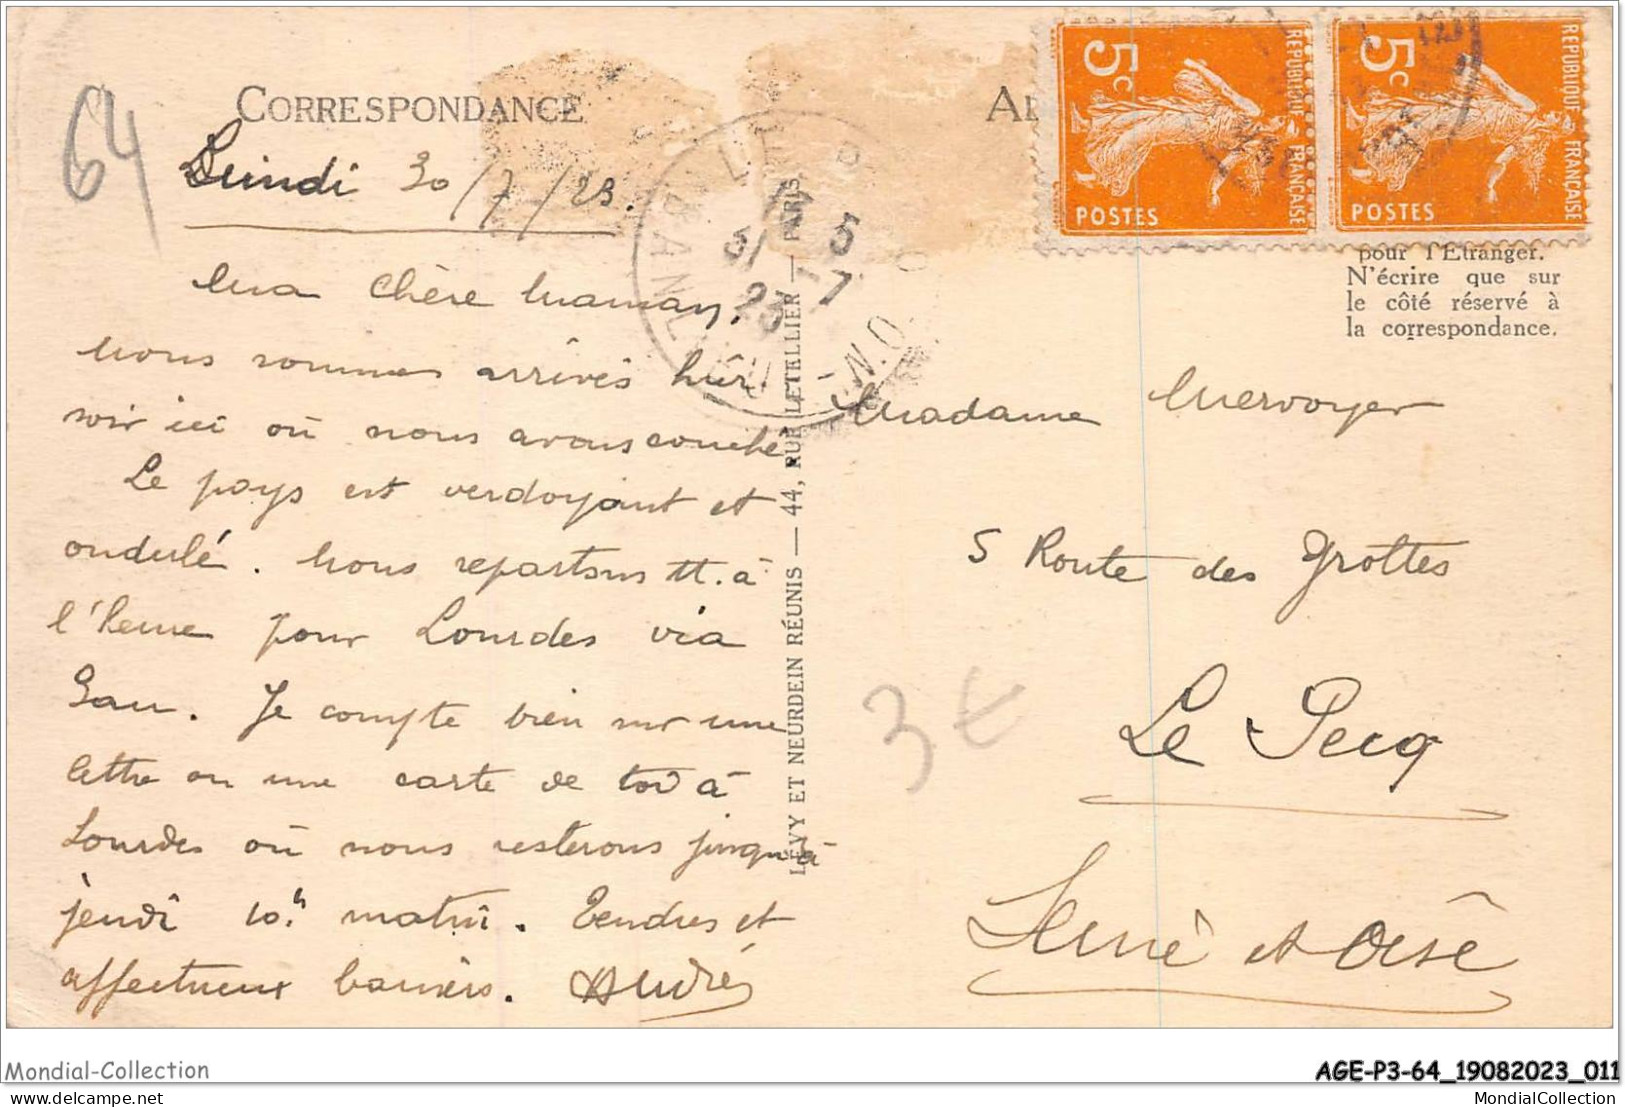 64
CORRESPONDANCE
Lundi 30/7/23.
Ma Chère Maman,
Nous sommes arrivés hier
soir ici où nous avons couché.
Le pays est verdoyant et
ondulé. Nous repartons tt. à
l'heure pour Lourdes via
Pau. Je compte bien sur une
lettre ou une carte de toi à
Lourdes où nous resterons jusqu'à
jeudi 10h matin. Tendres et
affectueux baisers. André
LE P
17 5
31 -7
23
BANLIEUE N.O
LÉVY ET NEURDEIN RÉUNIS — 44, RUE LETELLIER — PARIS
5c
REPUBLIQUE FRANÇAISE
POSTES
5c
REPUBLIQUE FRANÇAISE
POSTES
pour l'Etranger.
N'écrire que sur
le côté réservé à
la correspondance.
Madame Mervoyer
5 Route des Grottes
Le Pecq
Seine et Oise
3€
Mondial-Collection
AGE-P3-64_19082023_011
MondialCollection